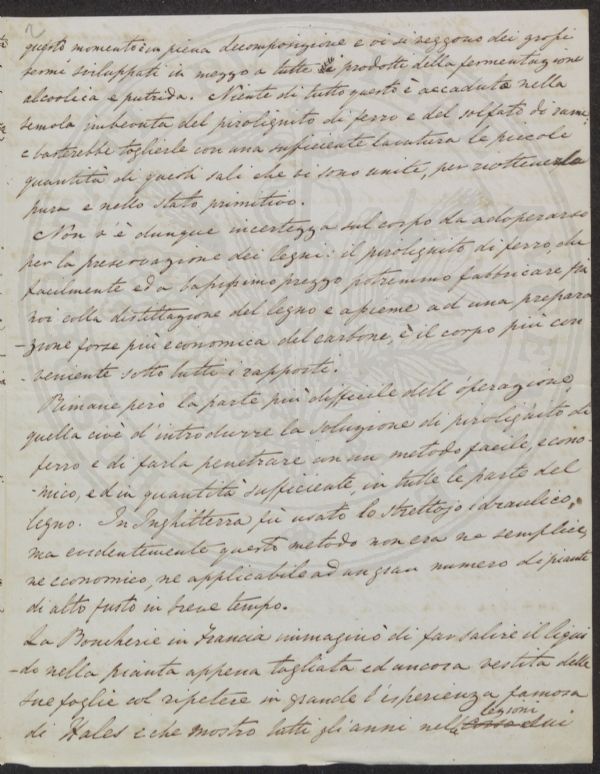 questo momento è in piena decomposizione e vi si veggono dei grossi
vermi sviluppati in mezzo a tutti i prodotti della fermentazione
alcoolica e putrida. Niente di tutto questo è accaduto nella
semola imbevuta del pirolignito di ferro e del solfato di rame,
e basterebbe toglierle con una sufficiente lavatura le piccole
quantità di questi sali che si sono unite, per riottenerla
pura e nello stato primitivo.
Non v'è dunque incertezza sul corpo da adoperarsi
per la preservazione dei legni: il pirolignito di ferro, che
facilmente ed a bassissimo prezzo potremmo fabbricare fra
noi colla distillazione del legno e assieme ad una prepara
-zione forse più economica del carbone, è il corpo più con
-veniente sotto tutti i rapporti.
Rimane però la parte più difficile dell'operazione,
quella cioè d'introdurre la soluzione di pirolignito di
ferro e di farla penetrare con un metodo facile, econo-
-mico, ed in quantità sufficiente, in tutte le parte del
legno. In Inghilterra fù usato lo strettojo idraulico,
ma evidentemente questo metodo non era ne semplice,
ne economico, ne applicabile ad un gran numero di piante
di alto fusto in breve tempo.
La Boucherie in Francia immaginò di far salire il liqui
-do nella pianta appena tagliata ed ancora vestita delle
sue foglie col ripetere in grande l'esperienza famosa
di Hales e che mostro tutti gli anni nelle lezioni